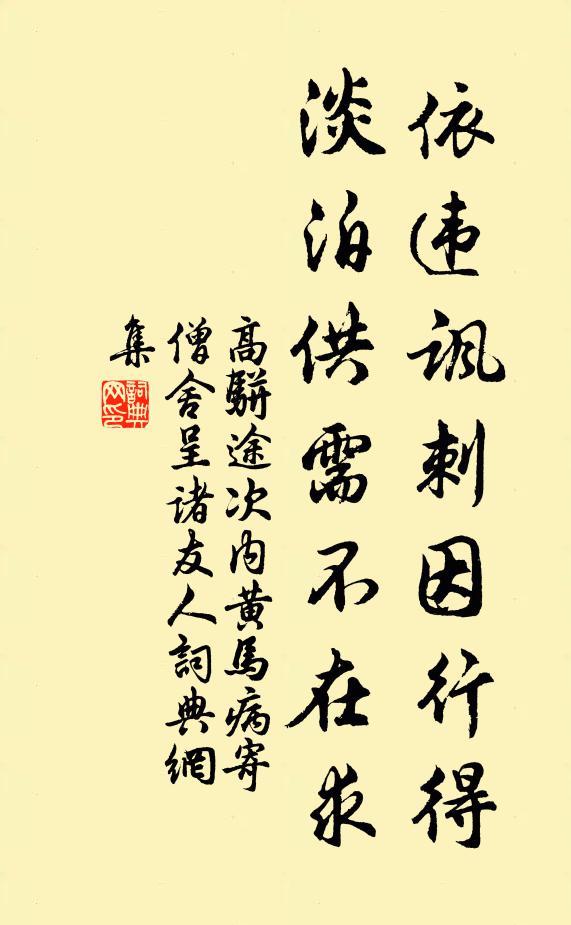 依违讽刺因行得
淡泊供需不在求
高駢途次内黄馬病寄
僧舍呈诸友人詞典網
集
詞典
网印